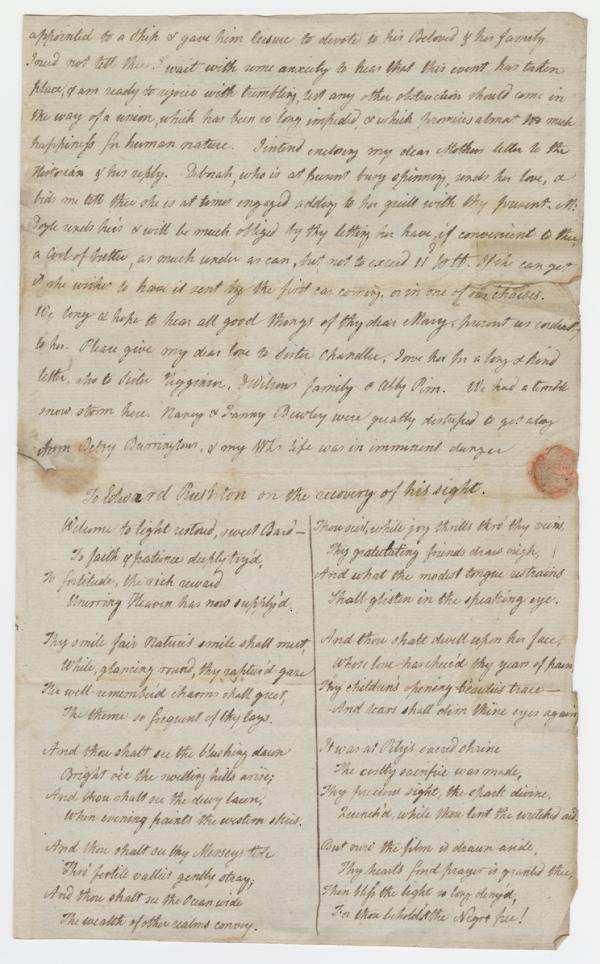 appointed to a Ship & gave him leisure to devote to his Beloved & her family
I need not tell thee I wait with some anxiety to hear that this event has taken
place, & am ready to rejoice with trembling, lest any other obstruction should come in
the way of a union, which has been so long impeded, & which promises almost too much
happiness for human nature. I intend enclosing my dear Mothers letter to the
Historian & his reply. Deborah, who is at present busy spinning, sends her love, &
bids me tell thee she is at times engaged adding to her quilt with thy present. M:
Doyle sends her's & will be much obliged by thy letting her have, if convenient to thee,
a Cool of butter, as much under as can, but not to exceed 11d ⅌ lb. If she can get
it she wishes to have it sent by the first car coming, or in one of our chaises.
We long & hope to hear all good things of thy dear Mary, present us cordially
to her. Please give my dear love to Sister Chandlee, I owe her for a long & kind
letter, also to Sister & Wilsons family & Abby Pim. We had a terrible
snow storm here. Nancy & Fanny Bewley were greatly distressed to get along
from Betsy Barringtons, & my Wm's life was in imminent danger
To Edward Rushton on the recovery of his sight.
Welcome to light restored, sweet Bard—
To faith & patience deeply try'd,
To fortitude, the rich reward
Unerring Heaven has now supply'd.
Thy smile fair Nature's smile shall meet,
While, glancing round, thy raptur'd gaze
Her well-remember'd charms shall greet,
The theme so frequent of thy lays.
And thou shalt see the blushing dawn
Bright o'er the swelling hills arise;
And thou shalt see the dewy lawn,
When evening paints the western skies.
And thou shalt see thy Mersey's tide
Thro' fertile vallies gently stray;
And thou shalt see the Ocean wide
The wealth of other realms convey.
Thou seest, while joy thrills thro' thy veins,
Thy gratulating friends draw nigh,
And what the modest tongue restrains
Shall glisten in the speaking eye.
And thou shalt dwell upon her face,
Whose love has cheer'd thy years of pain
Thy children's opening beauties trace—
And tears shall dim thine eyes again.
It was at Pity's sacred shrine
The costly sacrifice was made,
Thy precious sight, the spark divine,
Quench'd, while thou lent the wretched aid.
But now the film is drawn aside,
Thy heart's fond prayer is granted thee,
Then bless the light so long deny'd,
For thou behold'st the Negro free!